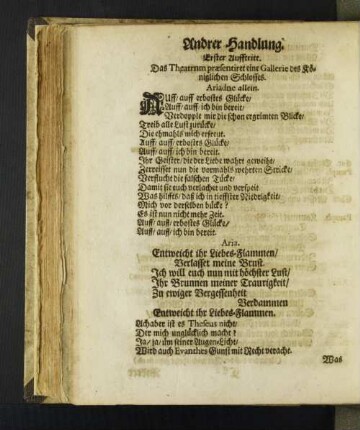 Andrer Handlung.
Erster Aufftritt.
Das Theatrum præsentiret eine Gallerie des Kö-
niglichen Schlosses.
Ariadne allein.
AUff/ auff erbostes Glücke/
Auff/ auff/ ich bin bereit/
Verdopple mir die schon ergrimten Blicke/
Treib alle Lust zurücke/
Die ehmahls mich erfreut.
Auff/ auff/ erbostes Glücke/
Auff/ auff/ ich bin bereit.
Ihr Geister/ die der Liebe waret geweiht/
Zerreisset nun die vormahls wehrten Stricke/
Verflucht die falschen Tücke/
Damit sie euch verlachet und verspeit
Was hilffts/ daß ich in tieffster Niedrigkeit/
Mich vor derselben bücke?
Es ist nun nicht mehr Zeit.
Auff/ auff/ erbostes Glücke/
Auff/ auff/ ich bin bereit.
Aria.
Entweicht ihr Liebes-Flammen/
Verlasset meine Brust.
Ich will euch nun mit höchster Lust/
Ihr Brunnen meiner Traurigkeit/
Zu ewiger Vergessenheit
Verdammen
Entweicht ihr Liebes-Flammen.
Ach aber ist es Theseus nicht/
Der mich unglücklich macht?
Ja/ ja/ üm seiner Augen-Licht/
Wird auch Evanthes Gunst mit Recht veracht.
Was